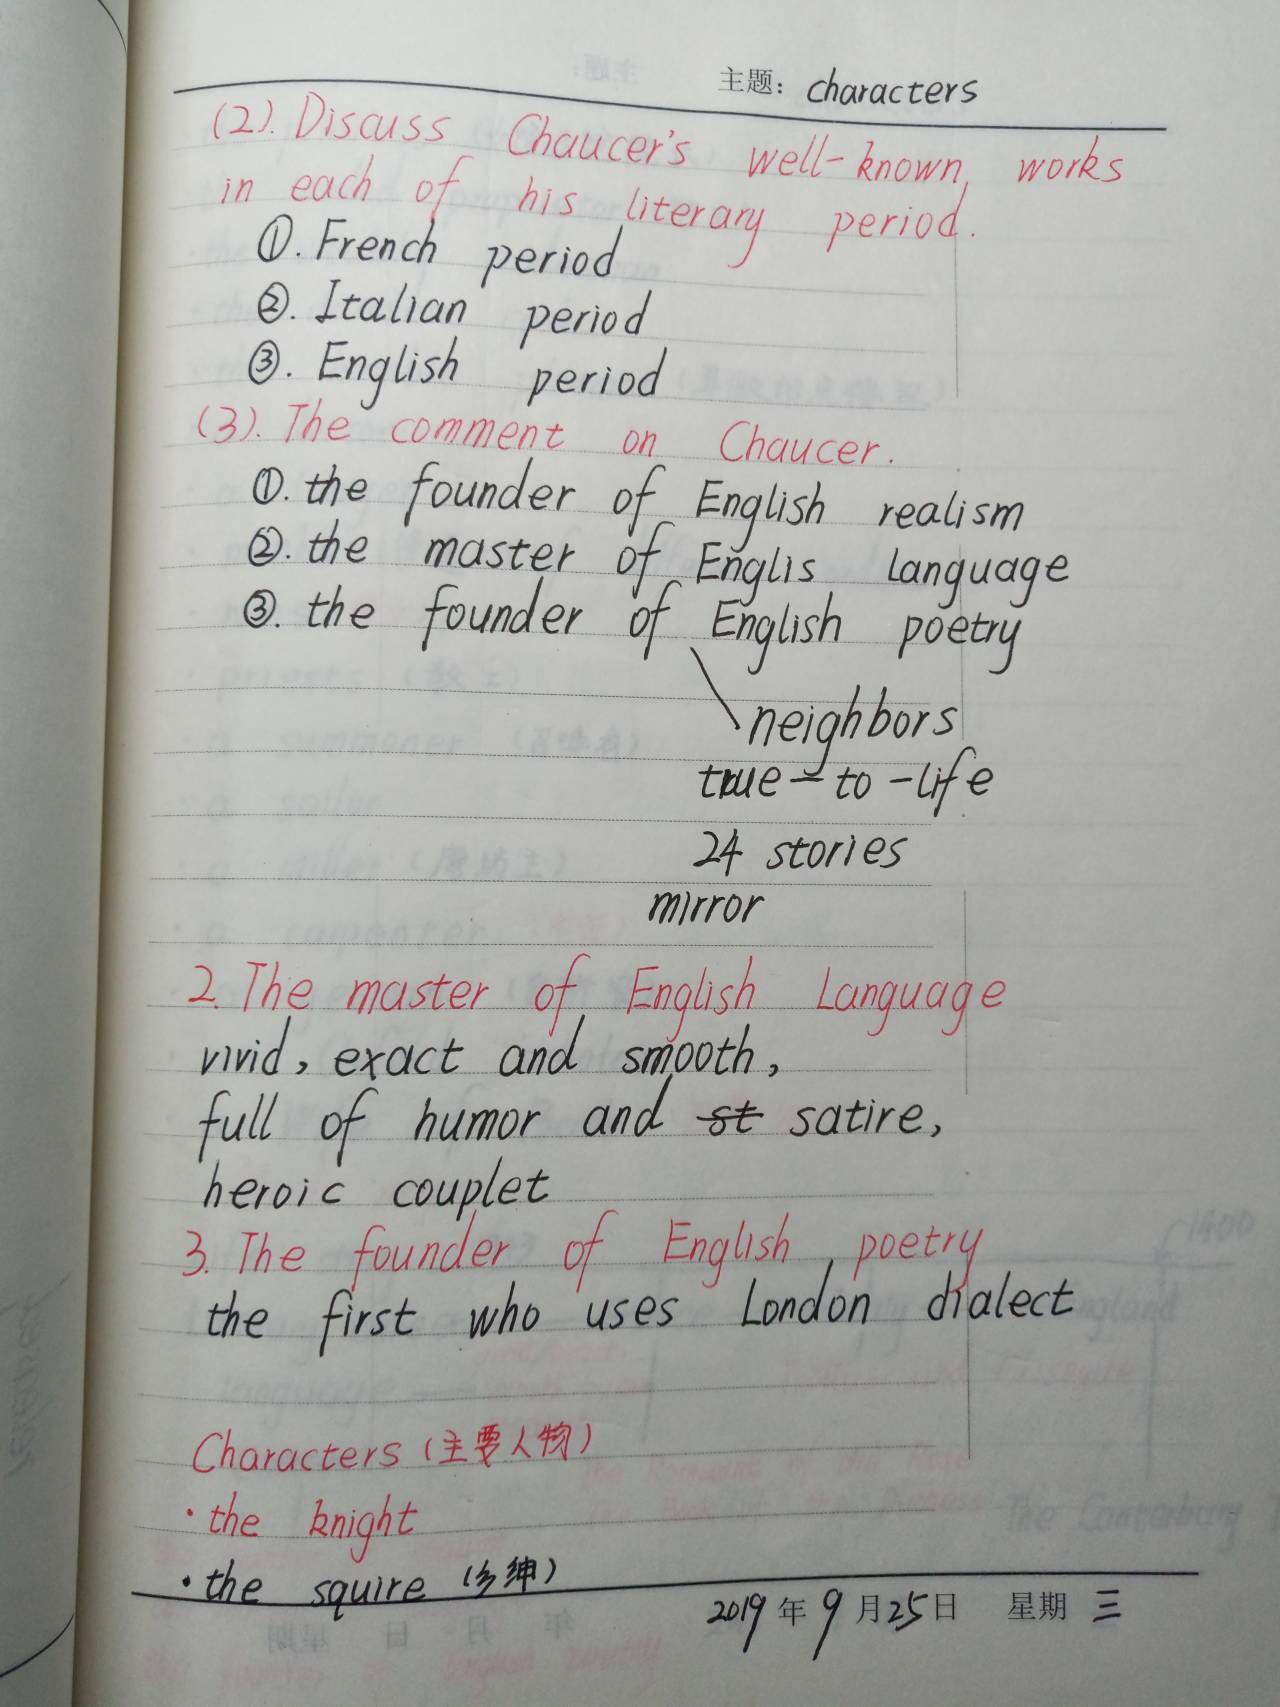 主题: characters
(2). Discuss Chaucer's well-known works
in each of his literary period.
①. French period
②. Italian period
③. English period
(3). The comment on Chaucer.
①. the founder of English realism
②. the master of Englis language
③. the founder of English poetry
neighbors
true-to-life
24 stories
mirror
2. The master of English Language
vivid, exact and smooth,
full of humor and st satire,
heroic couplet
3. The founder of English poetry
the first who uses London dialect
Characters (主要人物)
· the knight
· the squire (乡绅)
2019年9月25日 星期三